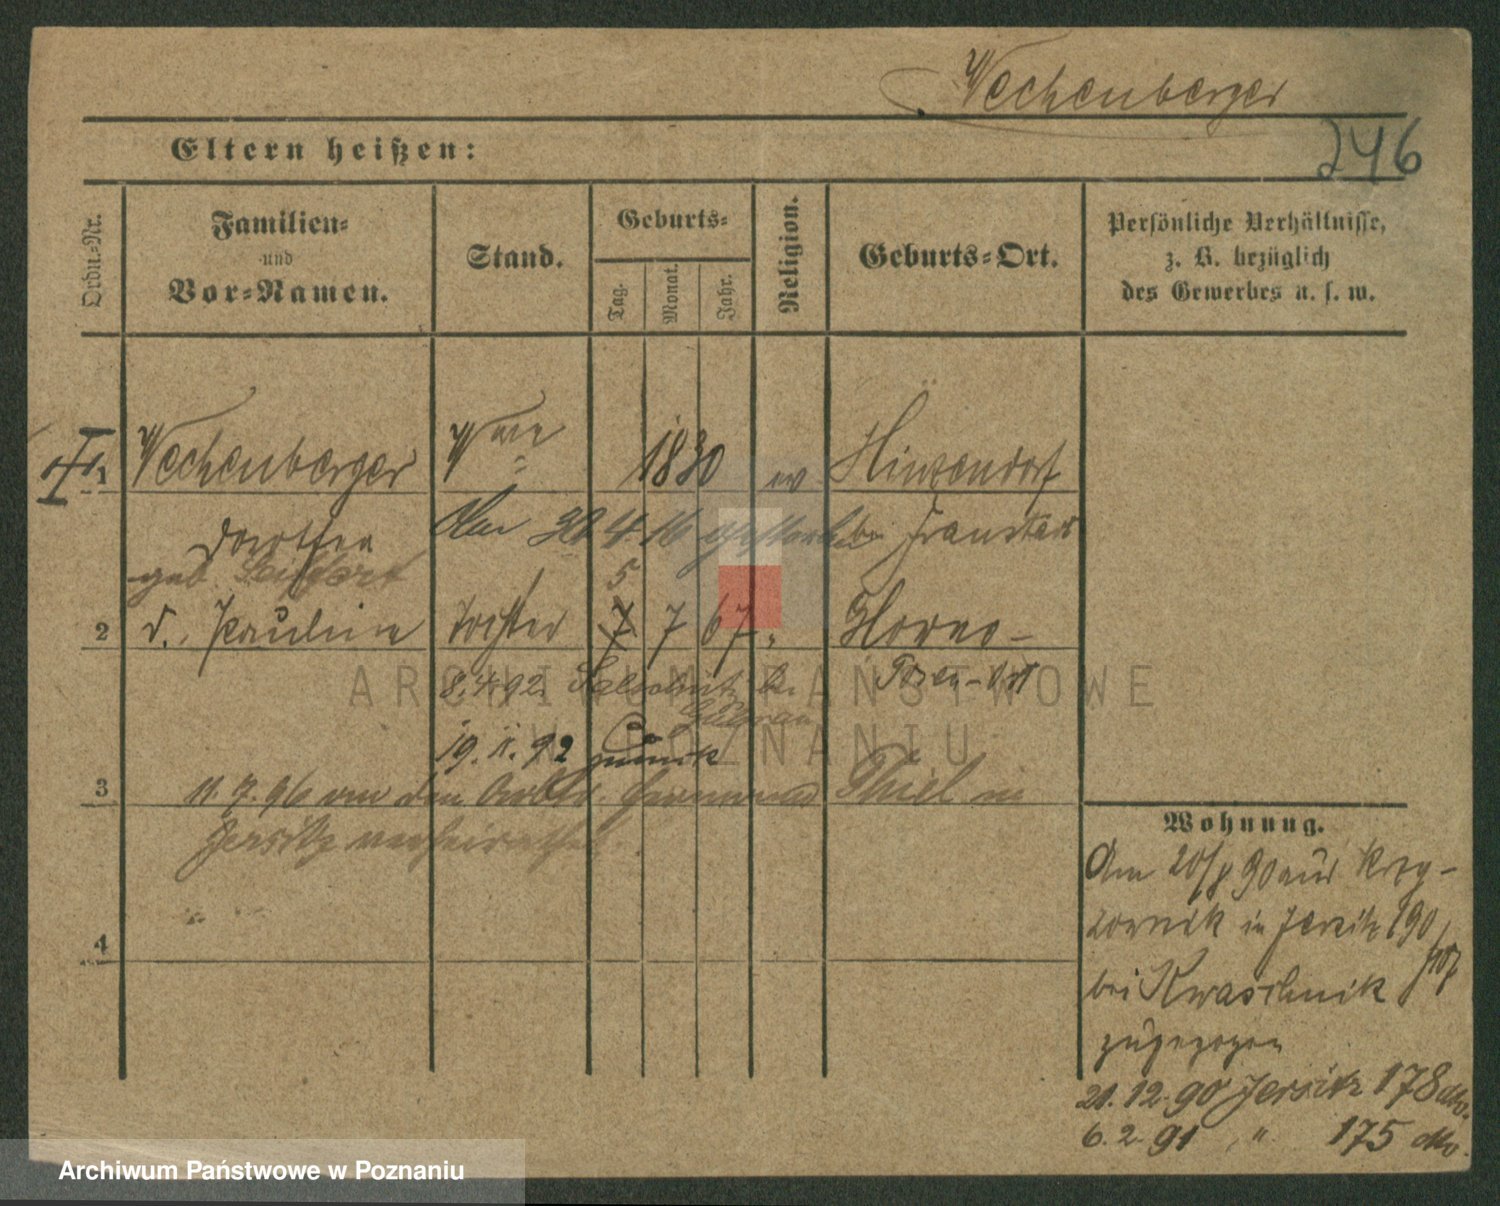 Wechenberger
246
Eltern heißen:
Ordn.-Nr.
Familien-
und
Vor-Namen.
Stand.
Geburts-
Tag.
Monat.
Jahr.
Religion.
Geburts-Ort.
Persönliche Verhältnisse,
z. B. bezüglich
des Gewerbes u. s. w.
1 Wechenberger Wwe 1830 ev Hinzendorf
Dorothea
geb. Seiffert
Am 30 4. 16 gestorben Fraustadt
5
2 d. Pauline Tochter 7 7 67 „
Posen-Ost
8.4.92.
19.11.92 zurück
3
11.7.96 von dem Arbtr. Thiel in
Jersitz verheirathet.
4
Wohnung.
Am 20/8 90 aus
in Jersitz 190
bei Kwaschnik
zugezogen
21.12.90 Jersitz 178
6.2.91 „ „ 175
ARCHIWUM PAŃSTWOWE
W POZNANIU
Archiwum Państwowe w Poznaniu